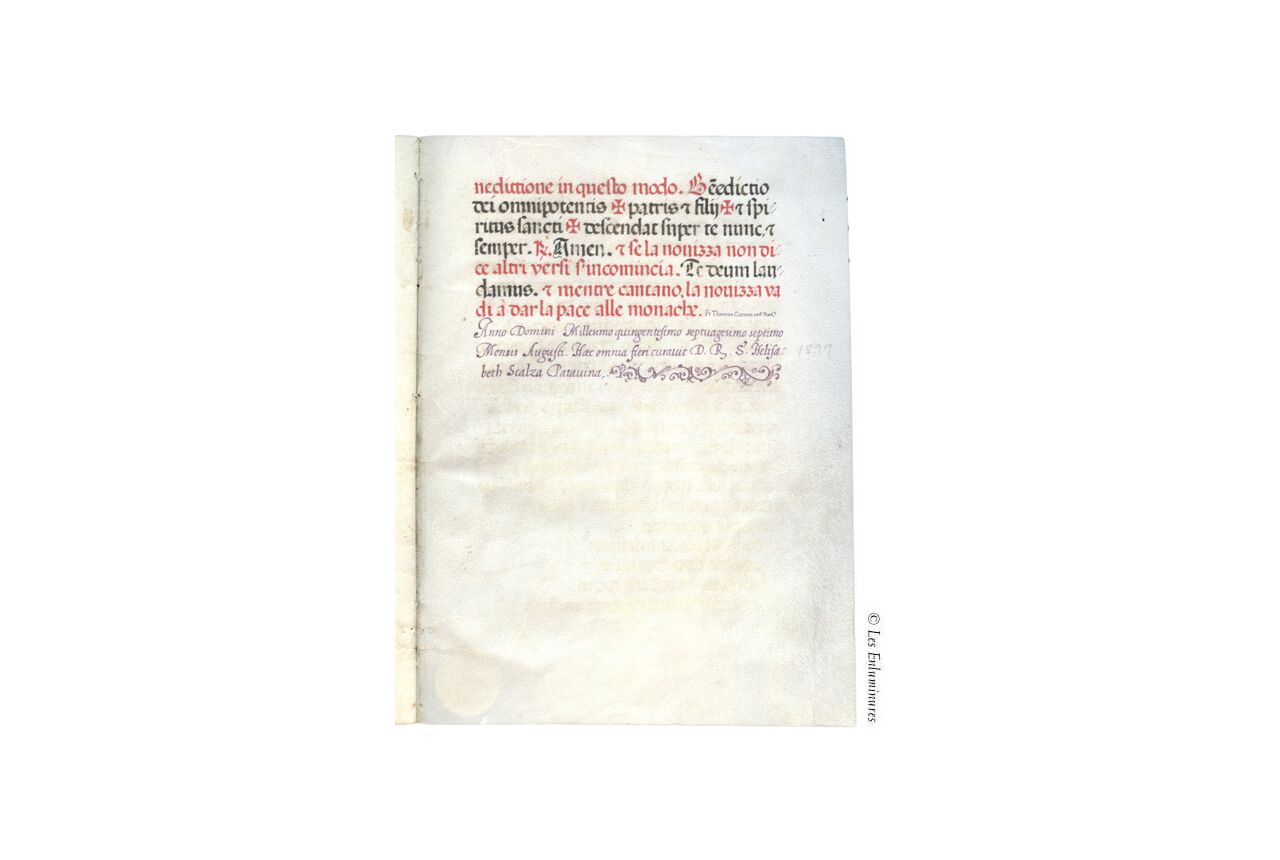 nedittione in questo modo. Bẽedictio
dei omnipotentis ✠ patris ⁊ filij ✠ ⁊ spi-
ritus sancti ✠ descendat super te nunc, ⁊
semper. ℟. Amen. ⁊ se la nouizza non di-
ce altri versi s'incomincia. Te deum lau-
damus. ⁊ mentre cantano, la nouizza va
di à dar la pace alle monache. Fr Thomas
Anno Domini Millesimo quingentesimo septuagesimo septimo
Mensis Augusti. Hæc omnia fieri curauit D. R. S. Helisa- 1577
beth Scalza Patauina.
© Les Enluminures